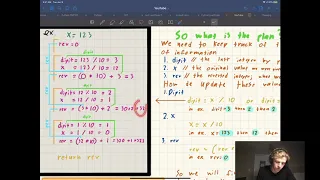 ex
x = 123
rev = 0
digit
digit = 123 % 10 = 3
x = 123 / 10 = 12
rev = (0 * 10) + 3 = 3
digit
digit = 12 % 10 = 2
x = 12 / 10 = 1
digit
digit = 1 % 10 = 1
x = 1 / 10 = 0
return rev
So what is the plan?
We need to keep track of
of information
1. digit // the last integer
2. x // the original value
3. rev // the reversed integer,
How de update these values
1. Digit
digit = x / 10 or digit =
in ex digit = 3 then 2 then
2. x
x = x / 10
in ex x = 123 then 12 then
3 rev
rev = (rev
in ex rev: 0
So we will